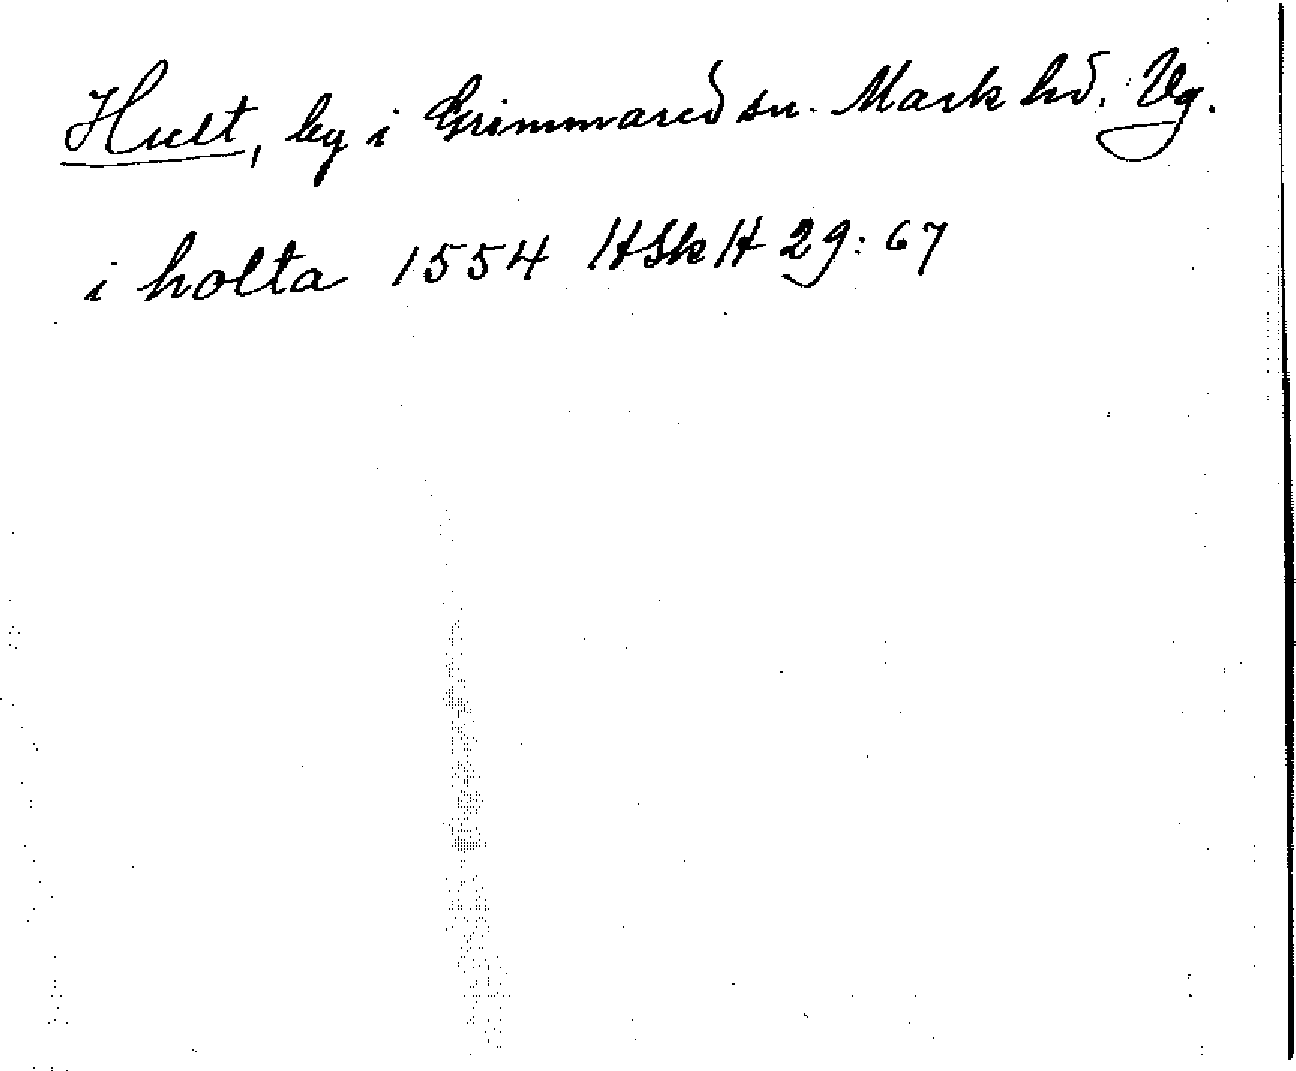 Hult, by i Grimmared sn. Mark hd. Vg.
i holta 1554 HSkH 29:67